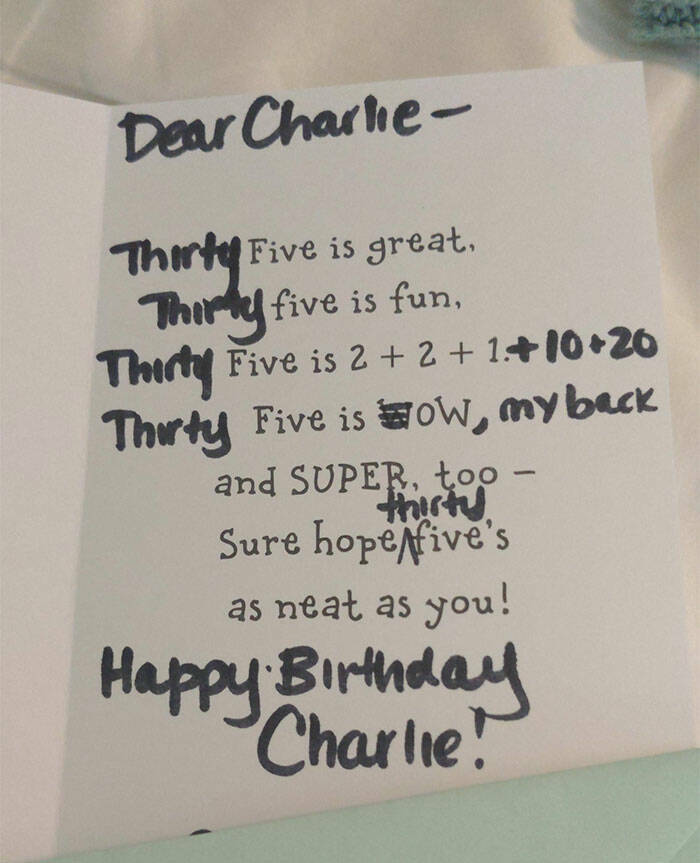 Dear Charlie-
Thirty Five is great,
Thirty five is fun,
Thirty Five is 2 + 2 + 1.+10+20
Thirty Five is OW, my back
and SUPER, too –
thirty
Sure hope five's
as neat as you!
Happy Birthday
Charlie!